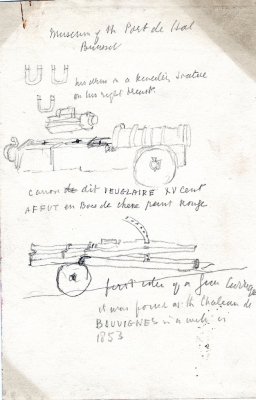 Museum of the Port de Hal
on his right breast
canon dit VEUGLAIRE XV Cent
AFFUT en Bois de chene peint Rouge
first idea of a Gun Carriage
it was found at the Chateau de
BOUVIGNES in a well in
1853